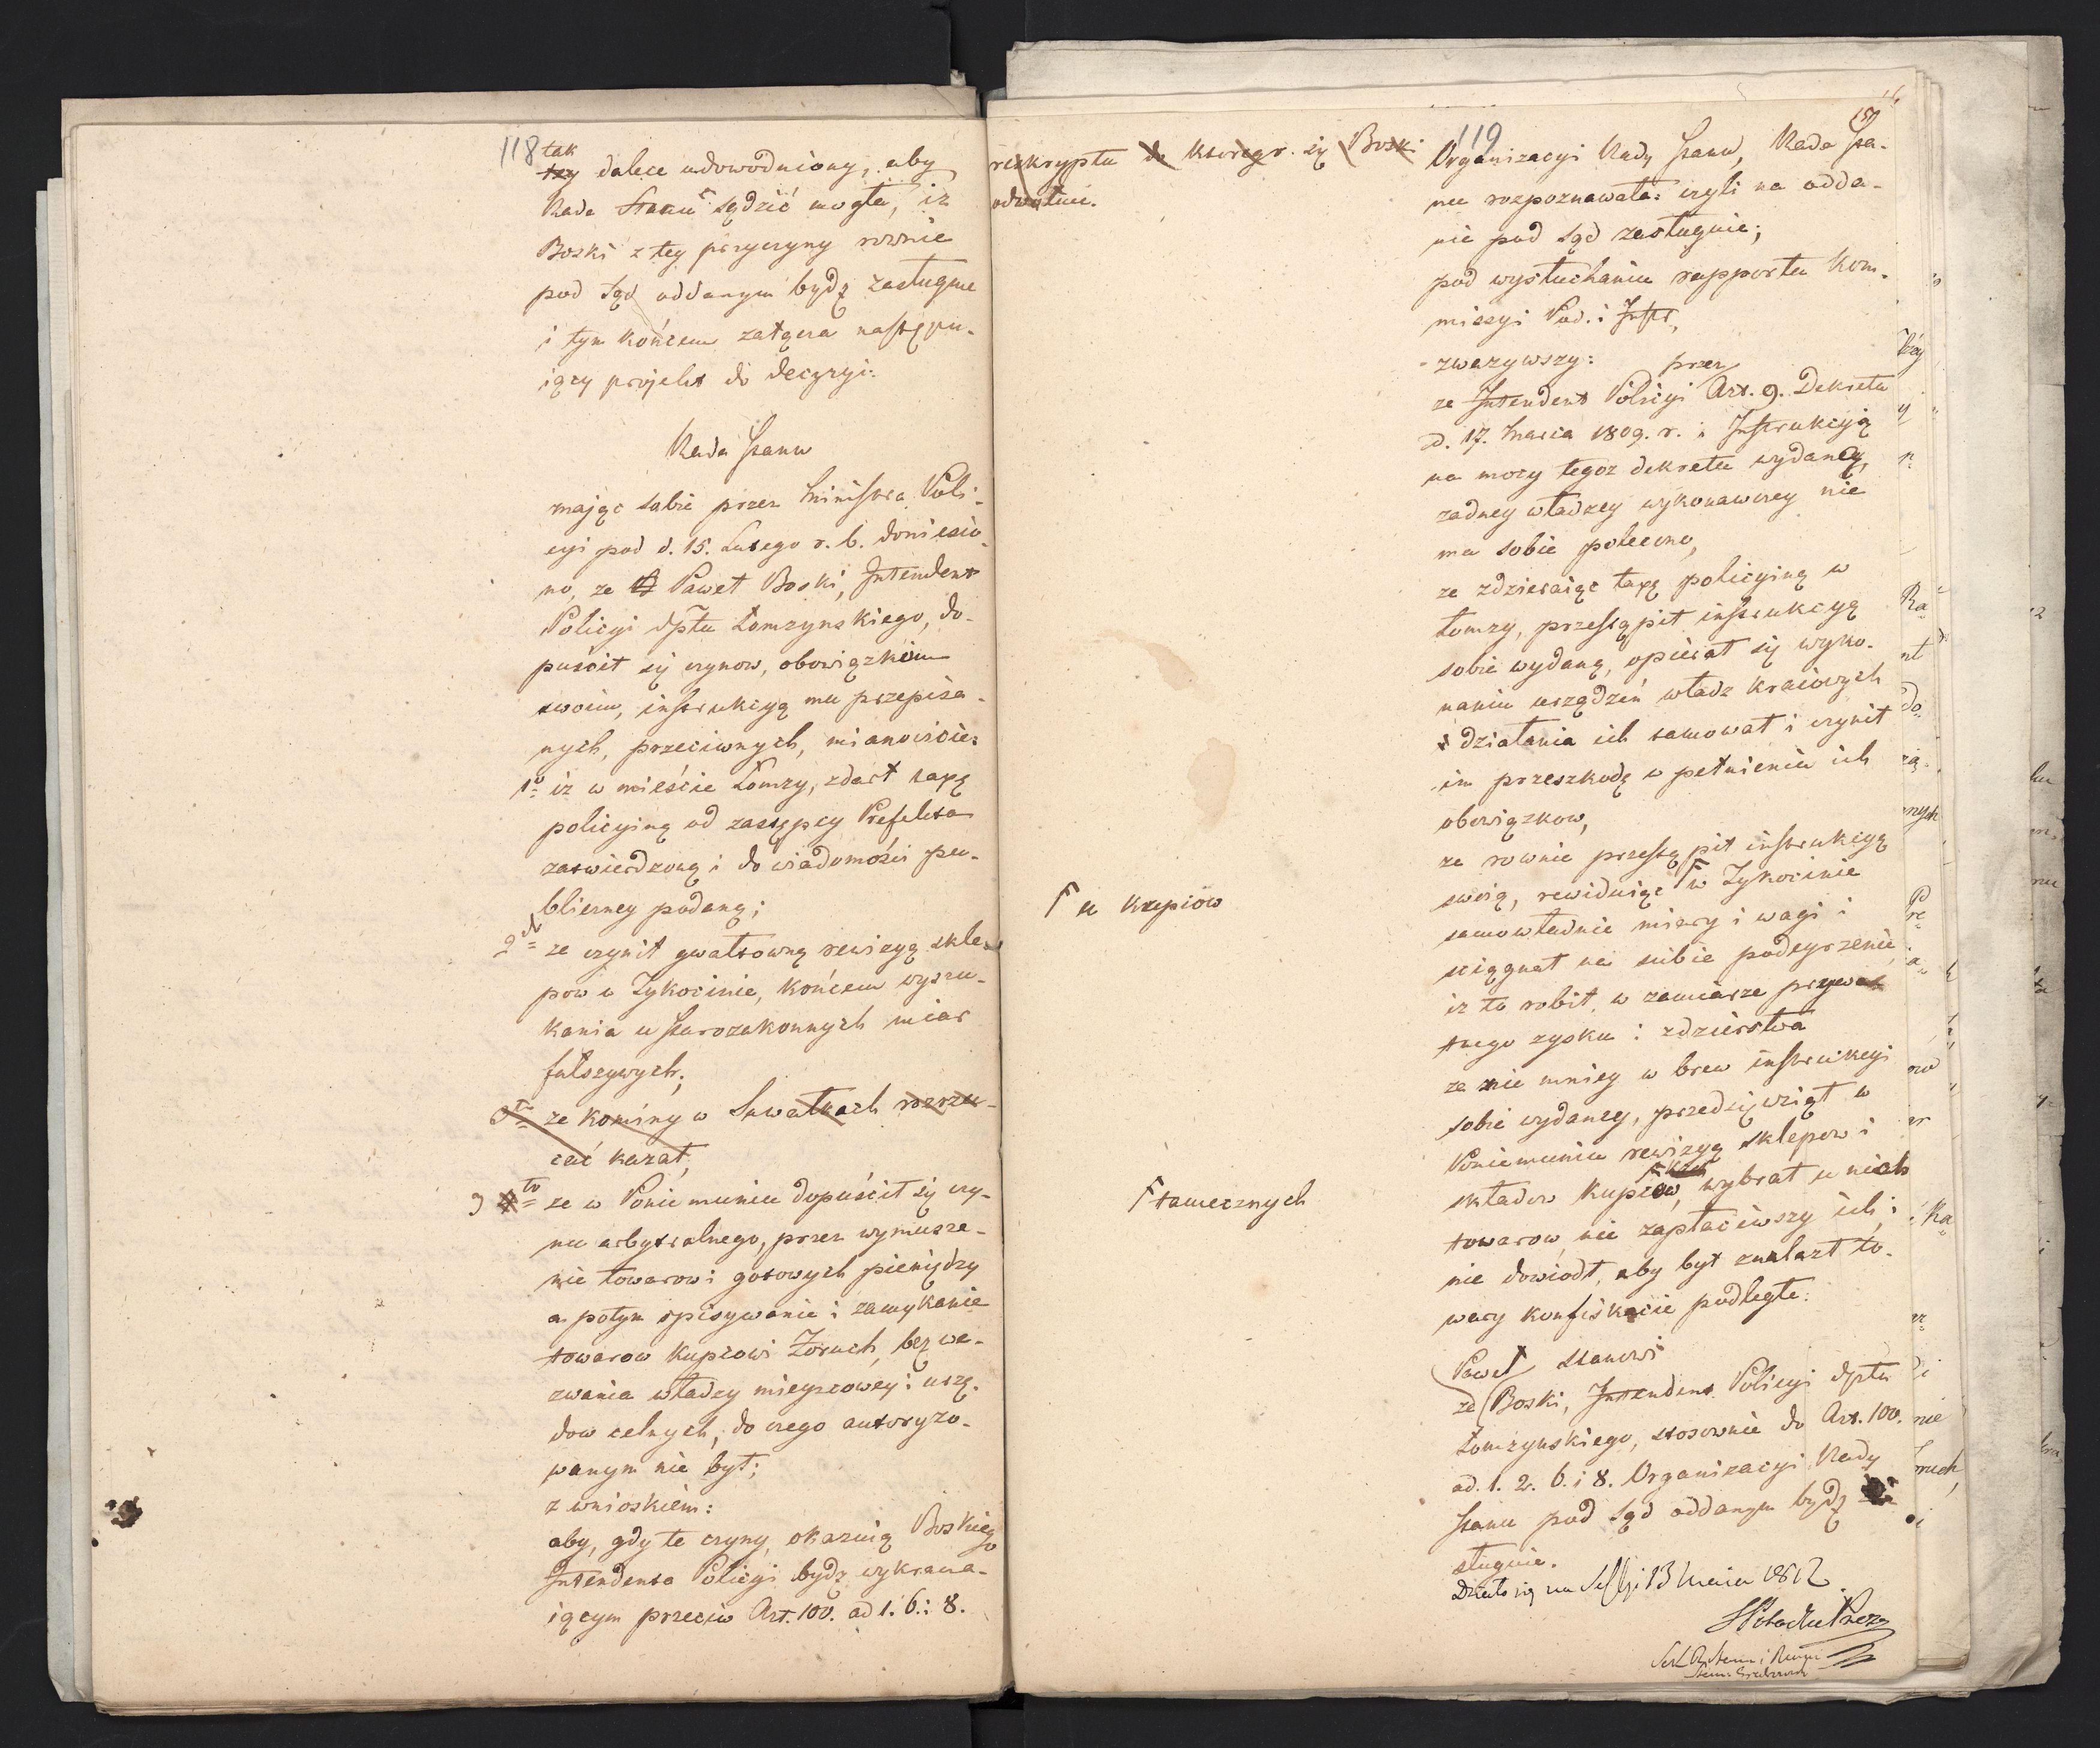 118
tak
tzy dalece udowodniony, aby
Rada Stanu sądzić mogła, iż
Boski z tey przyczyny rownie
pod Sąd oddanym bydź zasługuie
i tym końcem załącza następu-
iący projekt do decyzyi:
Rada Stanu
mając sobie przez Ministra Poli-
cyi pod d. 15. Lutego r. b. doniesio-
no, ze Paweł Boski, Intendent
Policyi dptu Łomzynskiego, do-
puścił się czynow, obowiązkom
swoim, instrukcyą mu przepisa-
nych, przeciwnych, mianowicie:
1o iz w mieście Łomzy, zdarł taxę
policyiną od zastępcy Prefekta
zatwierdzoną i do wiadomości pu-
bliczney podaną;
2do ze czynił gwałtowną rewizyą skle-
pow w Tykocinie, końcem wyszu-
kania u Starozakonnych miar
fałszywych;
3tio ze kominy w Suwałkach rozrzu-
cać kazał,
3 4to ze w Poniemuniu dopuścił się czy-
nu arbytralnego, przez wymusze-
nie towarow i gotowych pieniędzy
a potym spisywanie i zamykanie
towarow kupcowi Zoruch, bez we-
zwania władzy mieyscowey i urzę-
dow celnych, do czego autoryzo-
wanym nie był;
z wnioskiem:
aby, gdy te czyny, okazuią Boskiego
Intendenta Policyi bydź wykracza-
iącym przeciw Art. 100. ad 1. 6. i 8.
reskryptu do ktorego się Boski
odwołuie.
119
Organizacyi Rady Stanu, Rada Sta-
nu rozpoznawała: czyli na odda-
nie pod Sąd zasługuie;
pod wysłuchaniu rapportu Kom-
missyi Pod. i Instr,
zwazywszy:
przez
ze Intendent Policyi Art. 9. Dekretu
d. 17. Marca 1809. r. i Instrukcyią
na mocy tegoz dekretu wydaney,
zadney władzy wykonawczey nie
ma sobie polecono,
ze zdzieraiąc taxę policyiną w
Łomzy, przestąpił instrukcyą
sobie wydaną, opierał się wyko-
naniu urządzeń władz kraiowych
i działania ich tamował i czynił
im przeszkodę w pełnieniu ich
obowiązkow,
ze rownie przestąpił instrukcyą
swoią, rewiduiąc Γ w Tykocinie
Γ u kupcow
samowładnie miary i wagi i
sciągnął na siebie podeyrzenie,
iz to robił w zamiarze prywat
tnego zysku i zdzierstwa
ze nie mniey w brew instrukcyi
sobie wydaney, przedsięwziął w
Poniemuniu rewizyą sklepow i
składow kupcow, Γ wybrał u nich
Γ tamecznych
towarow nie zapłaciwszy ich, i
nie dowiodł, aby był znalazł to-
wary konfiskacie podległe.
Stanowi
Paweł
ze Boski, Intendent Policyi dptu
Łomzynskiego, stosownie do Art. 100.
ad. 1. 2. 6. i 8. Organizacyi Rady
Stanu pod Sąd oddanym bydź za-
sługuie.
Działo się na Sessyi 13 Maia 1812